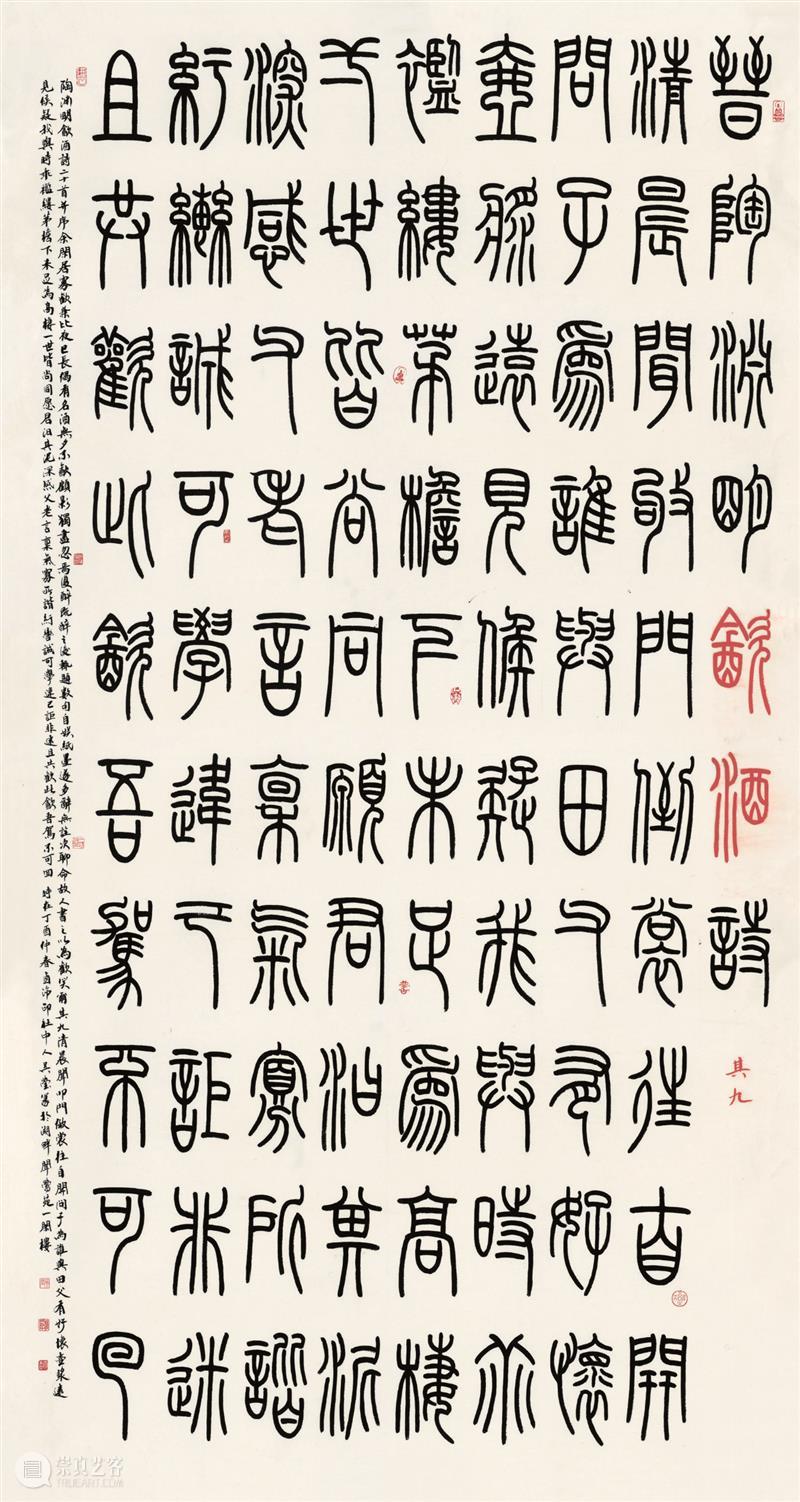 晉陶淵明飲酒詩
其九
清晨聞敂門倒裳往自開
問子爲誰與田父有好懷
壺漿遠見候疑我與時乖
襤縷茅檐下未足爲高棲
一世皆尚同願君汩其泥
深感父老言稟氣寡所諧
紆轡誠可學違己詎非迷
且共歡此飲吾駕不可回
陶淵明飲酒詩二十首并序余閑居寡歡兼比夜已長偶有名酒無夕不飲顧影獨盡忽焉復醉既醉之後輒題數句自娛紙墨遂多辭無詮次聊命故人書之以為歡笑爾其九清晨聞叩門倒裳往自開問子為誰與田父有好懷壺漿遠
見候疑我與時乖襤縷茅檐下未足為高棲一世皆尚同愿君汩其泥深感父老言稟氣寡所諧紆轡誠可學違己詎非迷且共歡此飲吾駕不可回 時在丁酉仲春西泠印社中人吳瑩篆於湖畔聞鶯苑一閑樓
崇真艺客